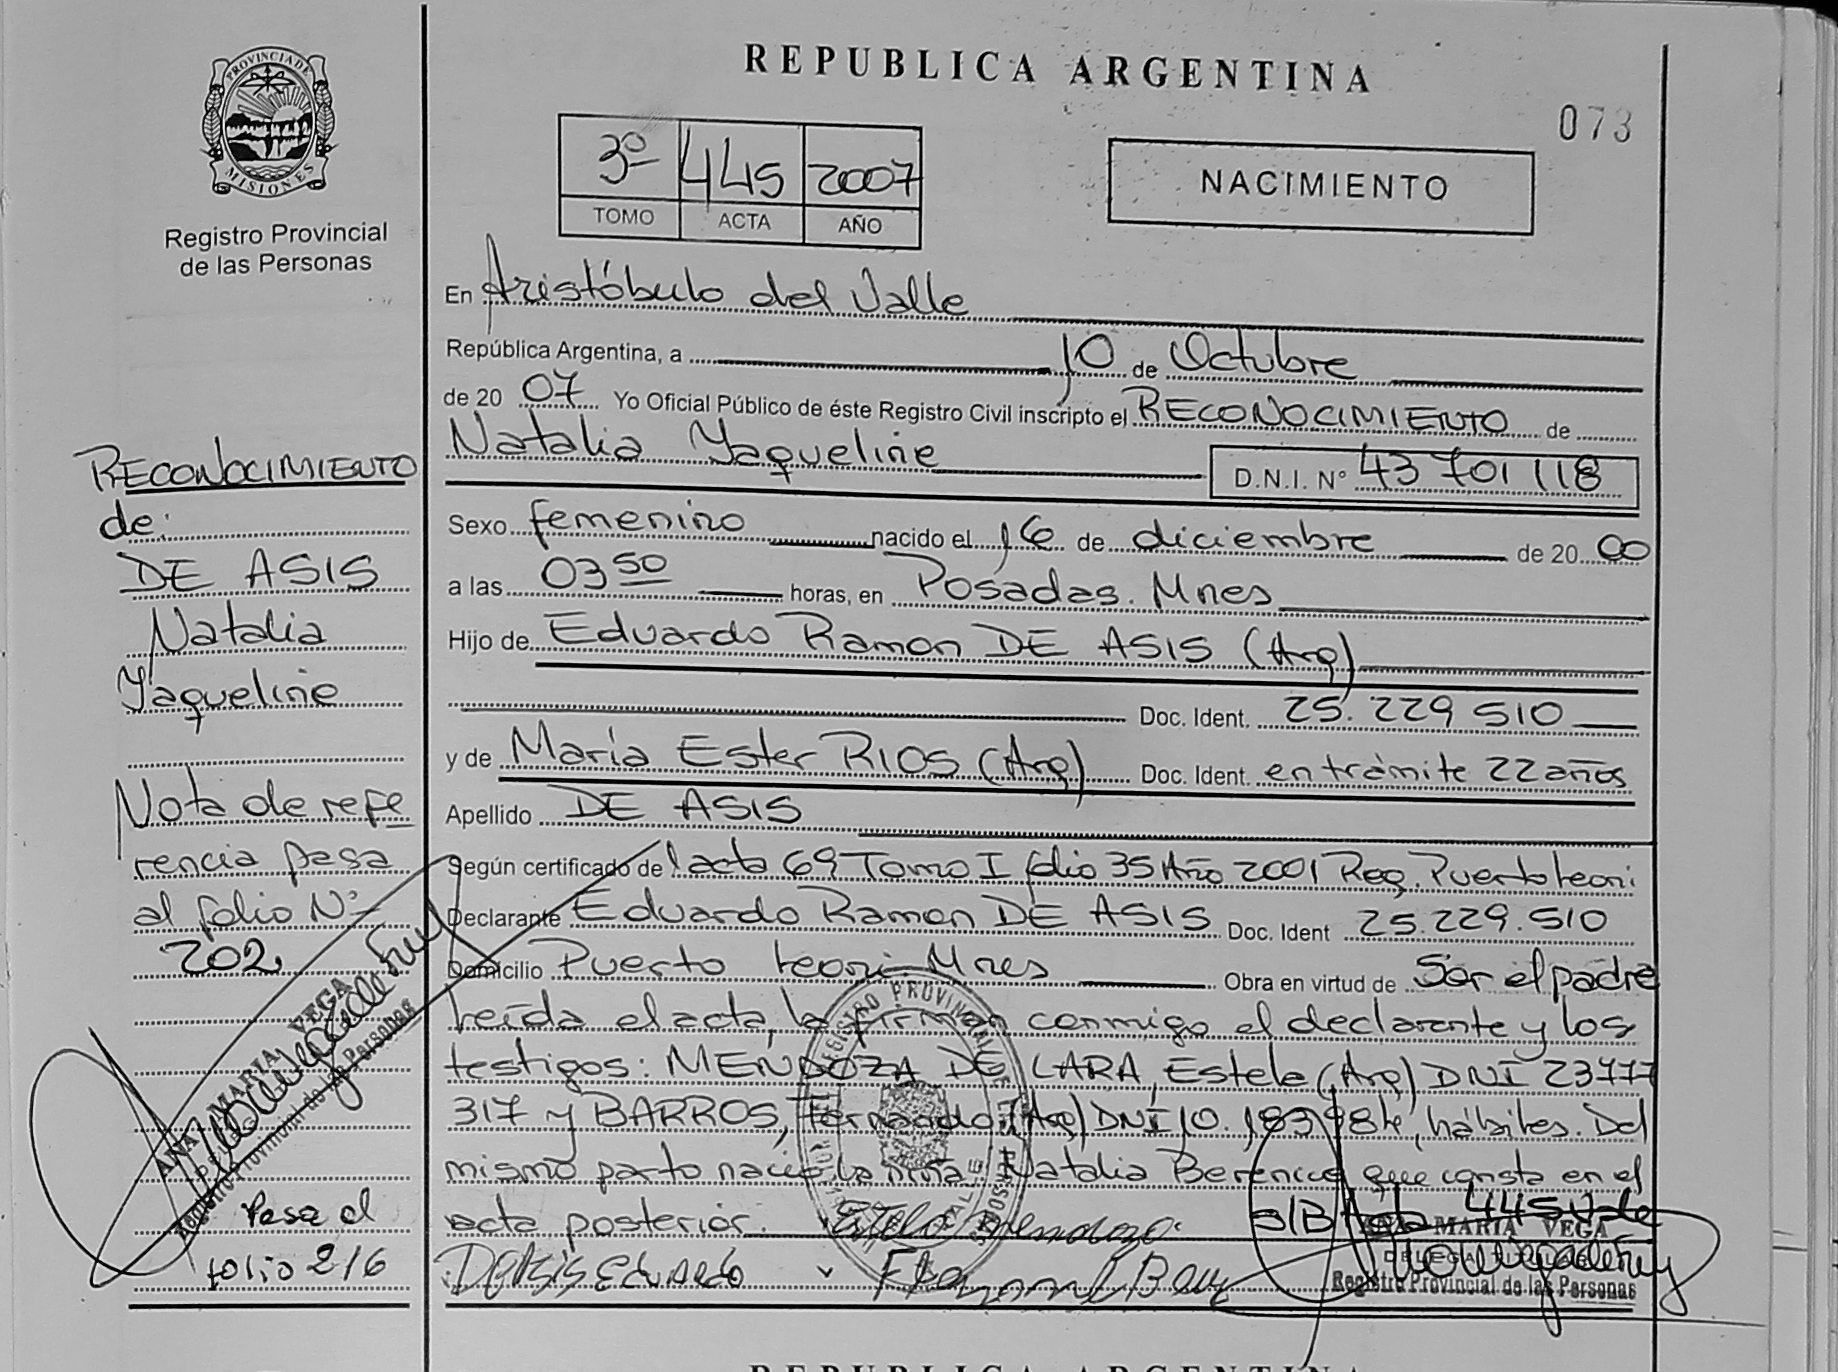 REPUBLICA ARGENTINA
073
PROVINCIA DE
MISIONES
Registro Provincial
de las Personas
3º 445 2007
TOMO ACTA AÑO
NACIMIENTO
En Aristóbulo del Valle
República Argentina, a 10 de Octubre
de 20 07 Yo Oficial Público de éste Registro Civil inscripto el RECONOCIMIENTO de
Natalia Yaqueline D.N.I. Nº 43 701 118
Sexo femenino nacido el 16 de diciembre de 20 00
a las 03 50 horas, en Posadas. Mnes
Hijo de Eduardo Ramon DE ASIS (Arg)
Doc. Ident. 25.229 510
y de María Ester RIOS (Arg) Doc. Ident. en trámite 22 años
Apellido DE ASIS
Según certificado de acta 69 Tomo I folio 35 Año 2001 Reg. Puerto Leoni
Declarante Eduardo Ramon DE ASIS Doc. Ident 25.229.510
Domicilio Puerto Leoni Mnes Obra en virtud de Ser el padre
Leída el acta, la firman conmigo el declarante y los
testigos: MENDOZA DE LARA, Estela (Arg) DNI 23777
317 y BARROS, Fernando (Arg) DNI 10.183984, hábiles. Del
mismo parto nació la niña Natalia Berenice que consta en el
acta posterior. Estela Mendoza S/B Acta 445 Vale
De Asis Eduardo
ANA MARIA VEGA
DELEGADA
Registro Provincial de las Personas
RECONOCIMIENTO
de:
DE ASIS
Natalia
Yaqueline
Nota de refe
rencia pasa
al folio Nº
202
ANA MARIA VEGA
DELEGADA
Registro Provincial de las Personas
Pasa al
folio 216
REPUBLICA ARGENTINA